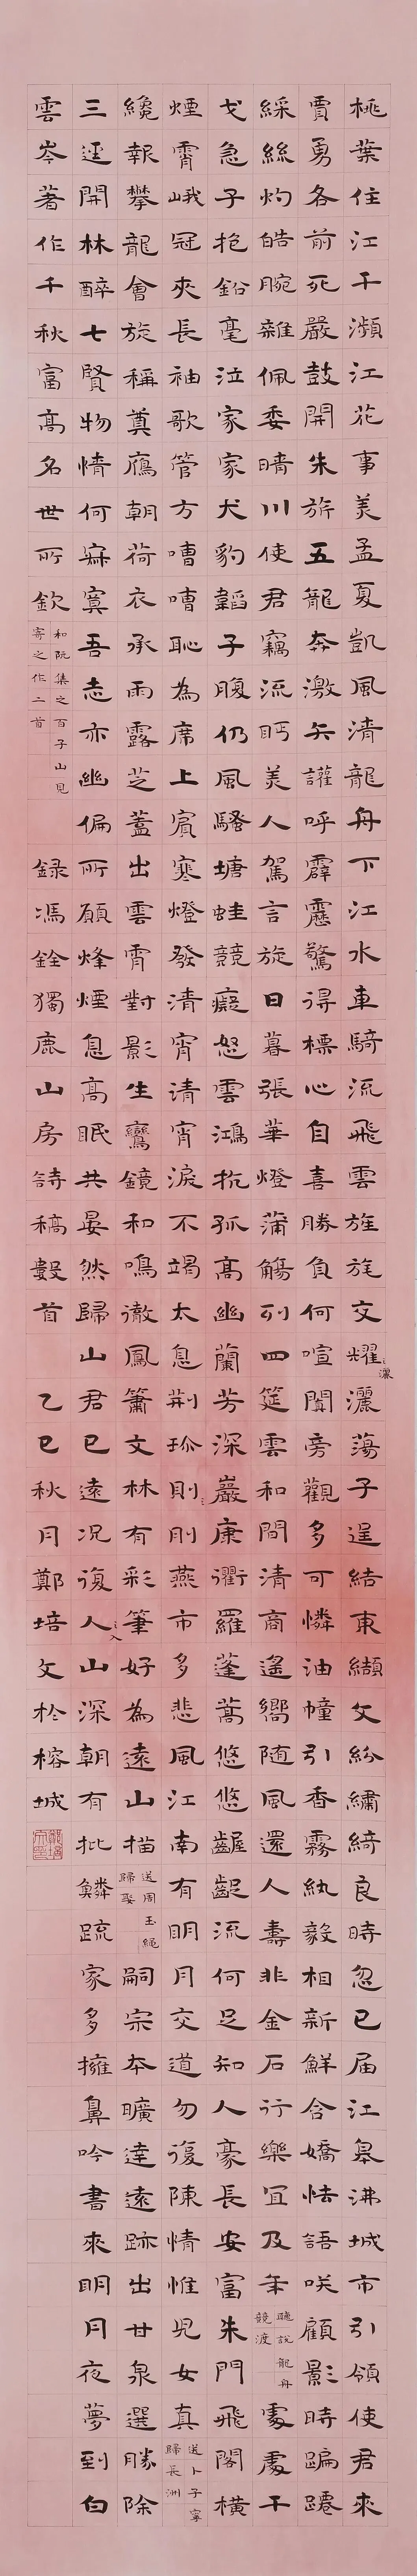 桃葉住江干瀕江花事美孟夏凱風清龍舟下江水車騎流飛雲旌旄交耀灑蕩子逞結束纈文紛繡綺良時忽已届江皋沸城市引領使君來
賈勇各前死嚴鼓開朱旂五龍奔激矢讙呼霹靂驚得標心自喜勝負何喧闐旁觀多可憐油幢引香霧紈縠相新鮮含嬌怯語咲顧影時蹁躚
綵絲灼皓腕雜佩委晴川使君竊流眄美人駕言旋日暮張華燈蒲觴列四筵雲和間清商遙嚮随風還人壽非金石行樂宜及年
聽説龍舟競渡
處處干
戈急子抱鉛毫泣家家犬豹韜子腹仍風騷塘蛙競癡怒雲鴻抗孤高幽蘭芳深巖康衢羅蓬蒿悠悠齷齪流何足知人豪長安富朱門飛閣橫
煙霄峨冠夾長袖歌管方嘈嘈恥為席上賓寒燈發清宵清宵淚不竭太息荆玠則刖燕市多悲風江南有明月交道勿復陳情惟兒女真
送卜子寧歸長洲
纔報攀龍會旋稱奠鴈朝荷衣承雨露芝蓋出雲霄對影生鸞鏡和鳴徹鳳簫文林有彩筆好為遠山描
送周玉繩歸娶
嗣宗本曠達遠跡出甘泉選勝除
三逕開林醉七賢物情何寂寞吾志亦幽偏所願烽煙息高眠共晏然歸山君已遠况復人山深朝有批鱗疏家多擁鼻吟書來明月夜夢到白
雲岑著作千秋富高名世所欽
和阮集之百子山見寄之作二首
録馮銓獨鹿山房詩稿數首
乙巳秋月鄭培文於榕城